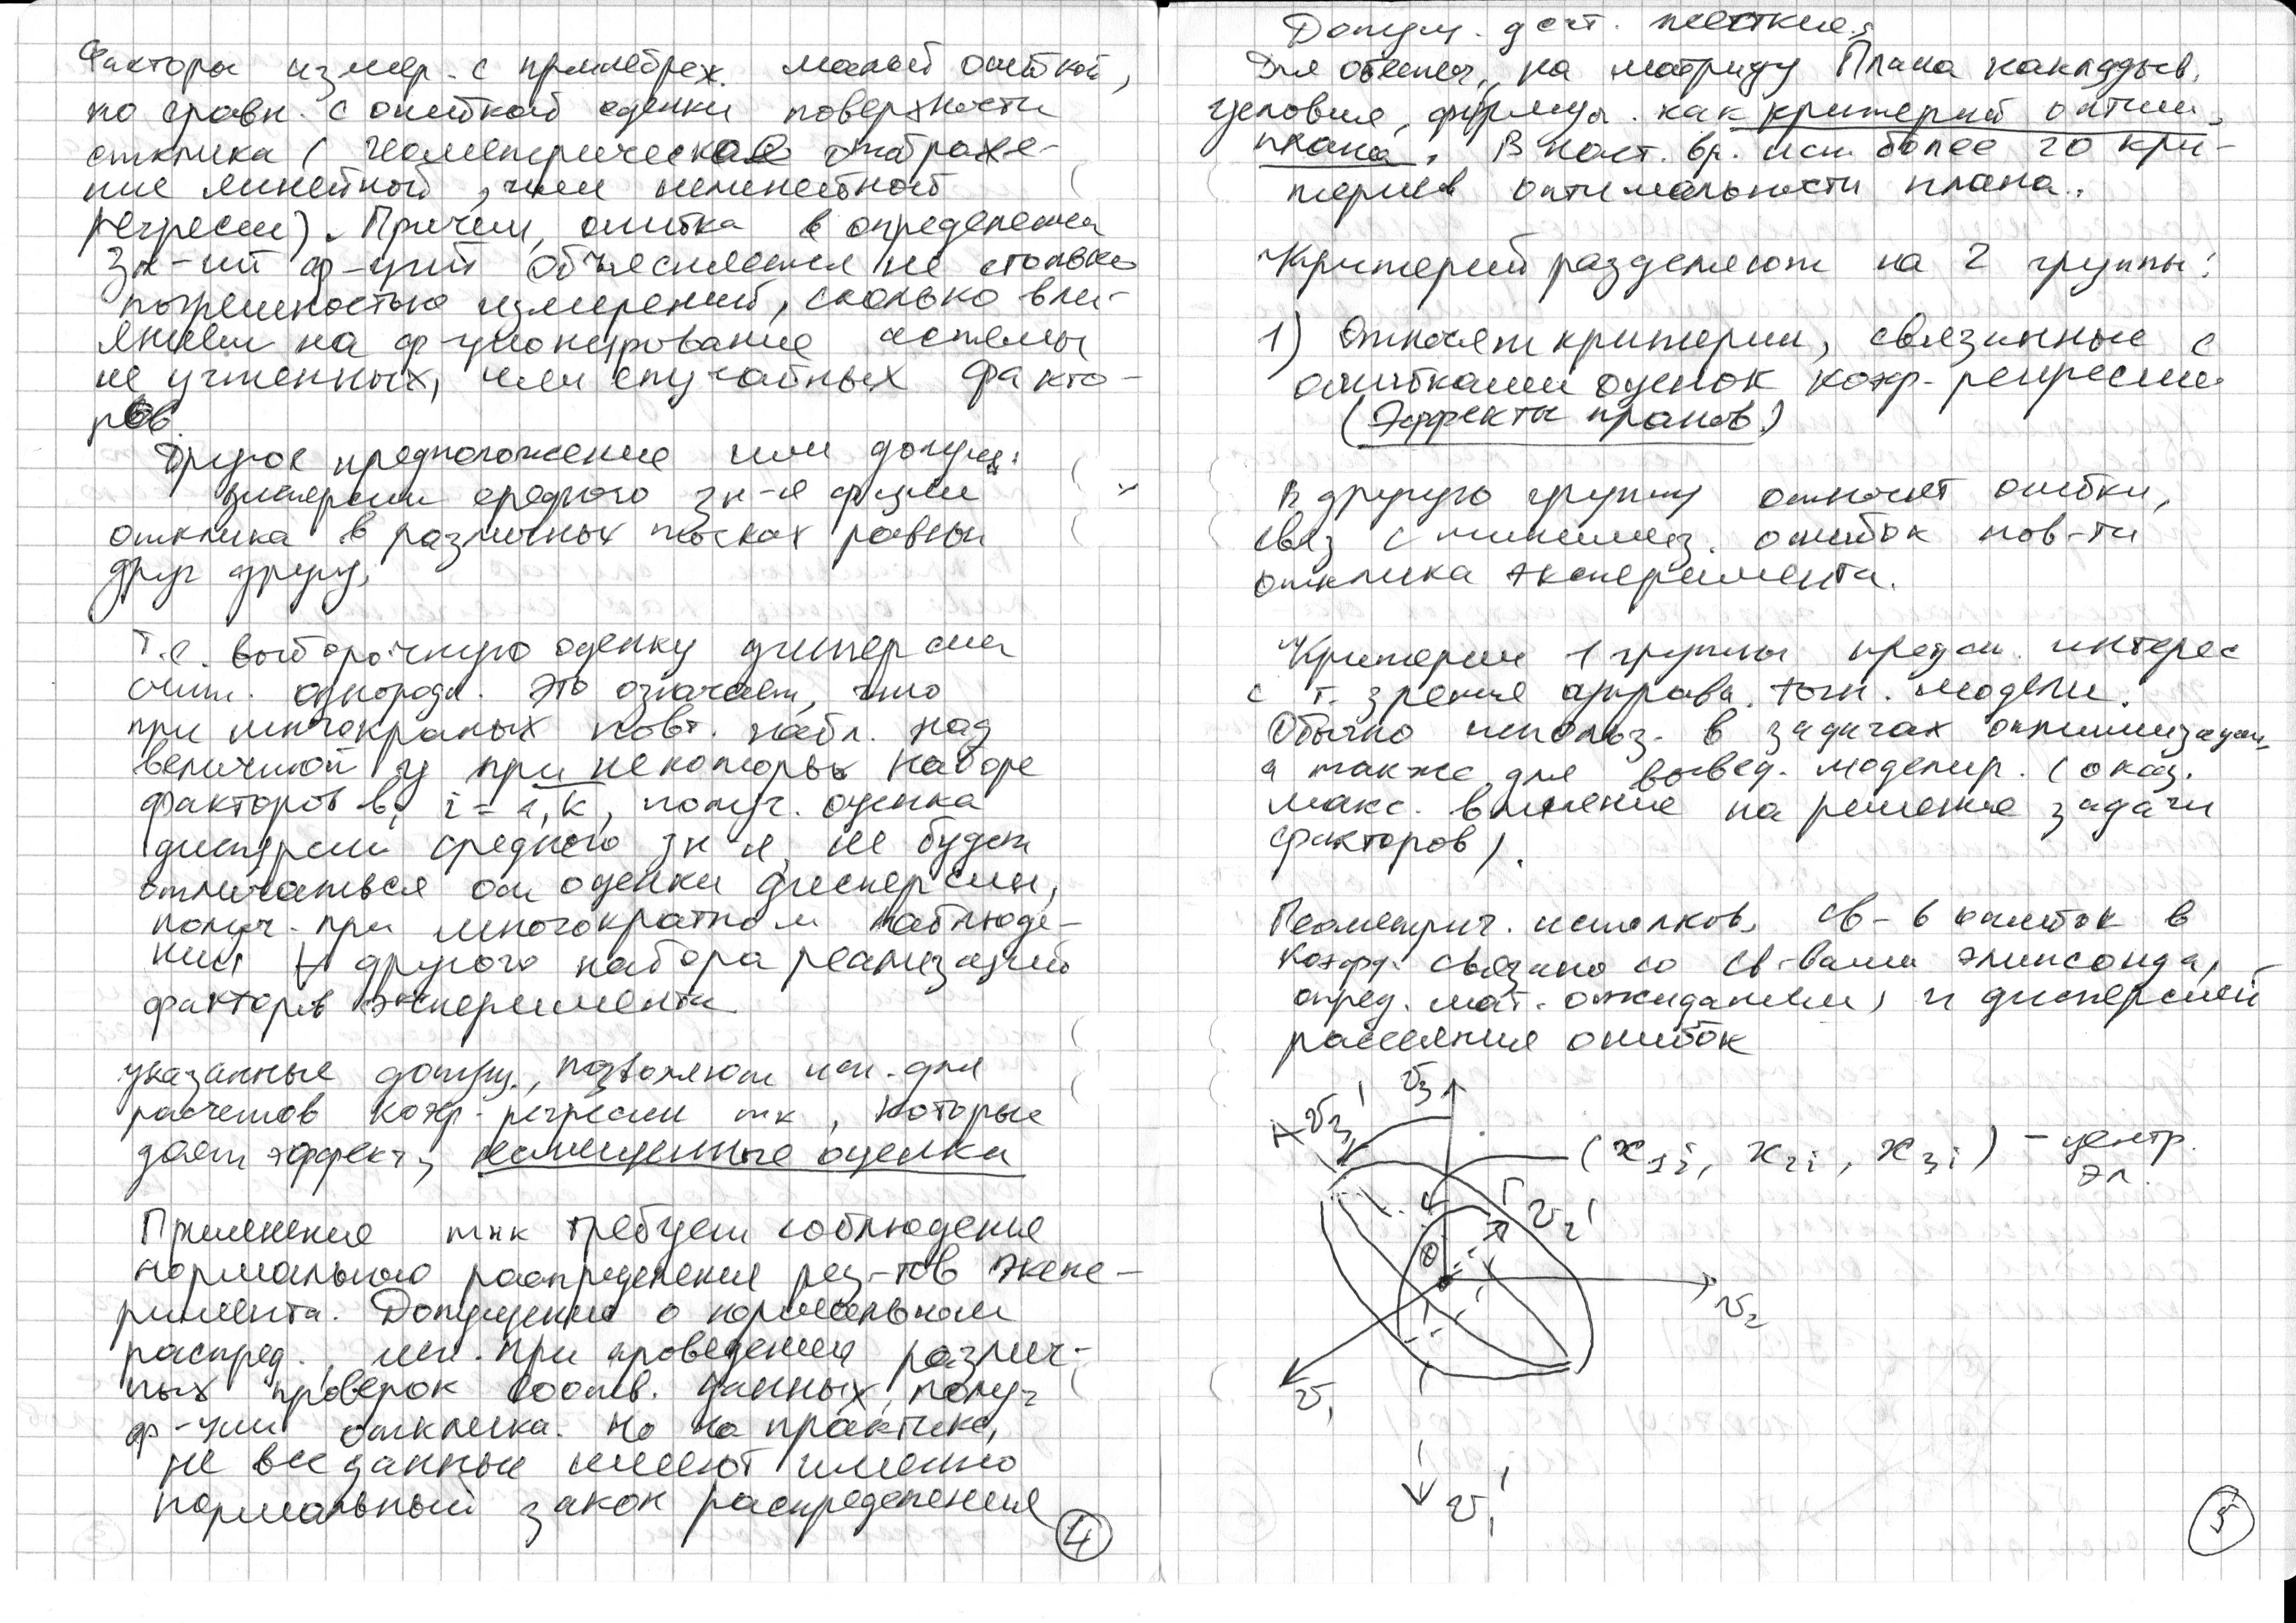 Факторы измер. с пренебреж. малой ошибкой,
по сравн. с ошибкой оценки поверхности
отклика (геометрическое отображе-
ние линейной, или нелинейной
регрессии). Причем, ошибка в определении
зн-ий ф-ций объясняется не столько
погрешностью измерений, сколько вли-
янием на ф-ционирование системы
не учтенных, или случайных факто-
ров.
Другое предположение или допущ:
дисперсии среднего зн-я ф-ции
отклика в различных точках равны
друг другу,
Т.е. выборочную оценку дисперсии
счит. однородн. Это означает, что
при многократных повт. набл. над
величиной y при некоторых наборе
факторов в, i = 1,k, получ. оценка
дисперсии среднего зн-я, не будет
отличаться от оценки дисперсии,
получ. при многократном наблюде-
нии ∀ другого набора реализаций
факторов эксперимента
указанные допущ., позволяют исп. для
расчетов коэф. регрессии мнк, которые
дает эффект, несмещенные оценки
Применение мнк требует соблюдение
нормального распределения рез-тов экспе-
римента. Допущение о нормальном
распред., исп. при проведении различ-
ных проверок соотв. данных, получ
ф-ции отклика. Но на практике,
не все данные имеют именно
нормальный закон распределения
4
Допущ. дост. жесткие.
Для обеспеч., на матрицу Плана накладыв.
условия, формул. как критерий оптим.
плана. В наст. вр. исп. более 20 кри-
териев оптимальности плана.
Критерий разделяют на 2 группы:
1) Относят критерии, связанные с
ошибками оценок коэф. регрессии.
(Эффекты планов.)
В другую группу относят ошибки,
связ с минимиз. ошибок пов-ти
отклика эксперимента.
Критерии 1 группы предст. интерес
с т. зрения точн. модели.
Обычно использ. в задачах оптимизации,
а также для моделир. (оказ.
макс. влияние на решение задачи
факторов).
Геометрич. истолков. св-в ошибок в
коэфф. связано со св-вами элипсоида,
опред. мат. ожиданием, и дисперсией
рассеяния ошибок
v₃
v₃'
(x₁ᵢ, x₂ᵢ, x₃ᵢ) – центр.
эл.
v₂'
θ
v₂
v₁
v₁'
5